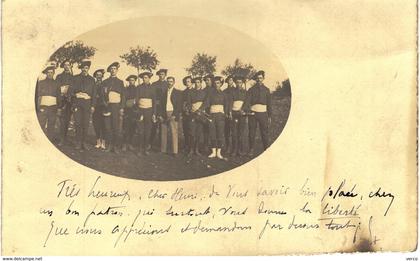 Très heureux, cher Henri, de vous savoir bien placé, chez
un bon patron, qui surtout, vous donne la liberté
que nous apprécions et demandons par dessus tout
verco